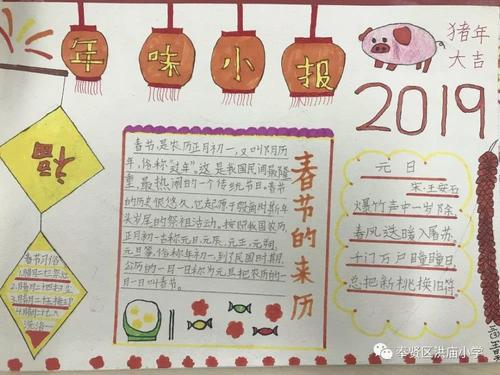 年味小报
猪年
大吉
2019
福
春节习俗
春节的来历
春节,是农历正月初一,又叫阴历
年,俗称"过年"。这是我国民间最隆
重、最热闹的一个传统节日。春节
的历史很悠久,它起源于殷商时期年
头岁尾的祭祖活动。按照我国农历,
正月初一古称元日、元辰、元正、元朔、
元旦等,俗称年初一,到了民国时期,
公历的一月一日称为元旦把农历的一
月一日叫春节。
元日
宋·王安石
爆竹声中一岁除,
春风送暖入屠苏。
千门万户曈曈日,
总把新桃换旧符。
奉贤区洪庙小学